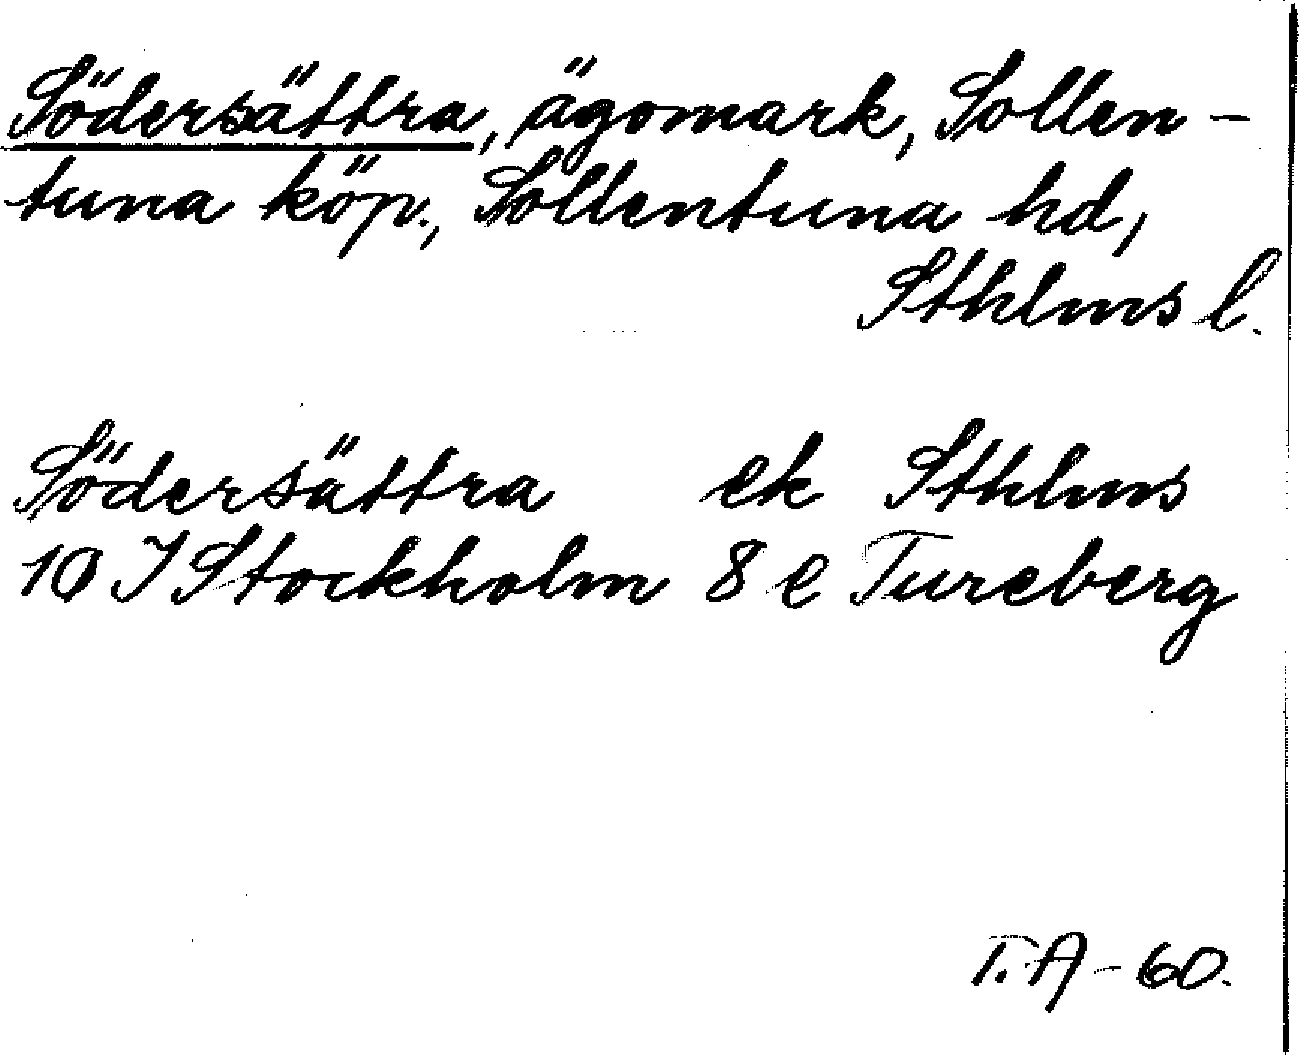 Södersättra, ägomark, Sollen-
tuna köp., Sollentuna hd,
Sthlms l.
Södersättra ek Sthlms
10 I Stockholm 8 e Tureberg
T.A-60.